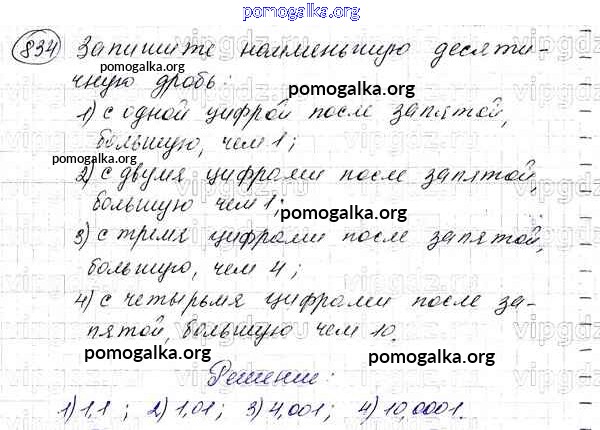 pomogalka.org
834 Запишите наименьшую десяти-
pomogalka.org
чную дробь:
pomogalka.org
1) с одной цифрой после запятой,
большую, чем 1;
pomogalka.org
2) с двумя цифрами после запятой,
большую чем 1;
pomogalka.org
3) с тремя цифрами после запятой,
большую, чем 4;
4) с четырьмя цифрами после за-
пятой, большую чем 10.
pomogalka.org
pomogalka.org
Решение:
1) 1,1 ; 2) 1,01; 3) 4,001; 4) 10,0001.